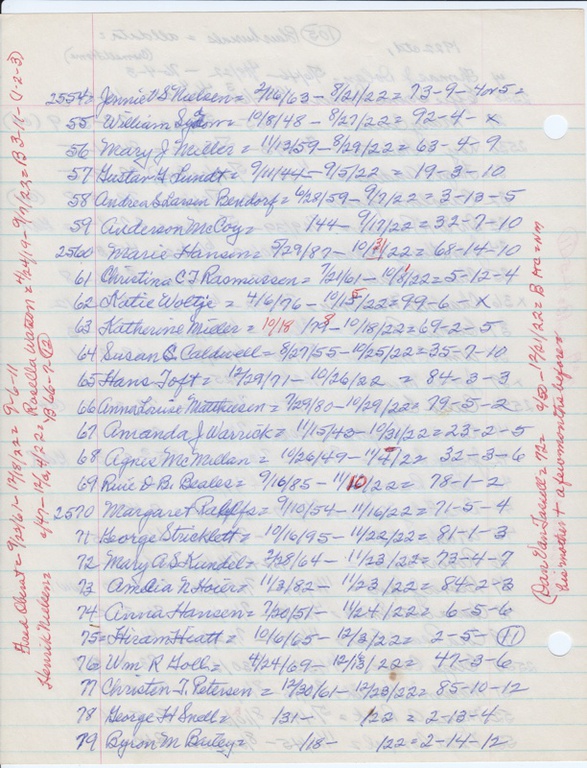 2554= Jennie S Nielsen= 2/16/63 - 8/21/22 = 73-9-4or5=
55 William = 10/8/48 - 8/27/22 = 92-4-x
56 Mary J Miller = 11/13/59 - 8/29/22 = 63-4-9
57 Gustav F Lundt= 9/11/44 - 9/5/22 = 19-3-10
58 Andrea S Larsen Bendorf= 6/28/59 - 9/7/22 = 3-13-5
59 Anderson McCoy= 144 - 9/17/22 = 32-7-10
2560 Marie Hansen= 5/29/87 - 10/ /22 = 68-14-10
61 Christina C F Rasmussen= 7/21/61 - 10/ /22 = 5-12-4
62 Katie Woltje = 4/6/76 - 10/15/22 = 99-6-x
63 Katherine Miller= 10/18 /78 - 10/18/22 = 69-2-5
64 Susan C. Caldwell= 8/27/55 - 10/25/22 = 35-7-10
65 Hans Toft= 12/29/71 - 10/26/22 = 84-3-3
66 Anna Louise Matthiesen= 7/29/80 - 10/29/22 = 79-5-2
67 Amanda J Warrick= 11/15/42 - 10/31/22 = 23-2-5
68 Agnes McMellan= 10/26/49 - 11/ /22 32-3-6
69 D B. Beales= 9/16/85 - 11/10/22 = 78-1-2
2570 Margaret = 9/10/54 - 11/16/22 = 71-5-4
71 George Stricklett= 10/16/95 - 11/22/22 = 81-1-3
72 Mary A S Kundel= 2/28/64 - 11/23/22 = 73-4-7
73 Amelia N Hoier= 11/3/82 - 11/23/22 = 84-2-3
74 Anna Hansen= 7/20/51 - 11/24/22 = 6-5-6
75= Hiram Hiatt= 10/6/65 - 12/3/22 = 2-5-11
76 Wm R Goll= 4/24/69 - 12/ /22 = 47-3-6
77 Christen T Petersen= 12/30/61 - 12/23/22 = 85-10-12
78 George H Snell= 131- /22 = 2-13-4
79 Byron M Bailey= /18- /22 = 2-14-12
= 9/25/61 - 12/18/22 = 9-6-11
Henrik Nielsen= 2/47 - 12/24/22 = B 66-7-12
Rosella Watson= 4/24/19 - 9/7/22 = B 3-11-(1-2-3)
(Dan Van Tassell= 172= 2/50 - 12/21/22 =
his mother + a few months before=